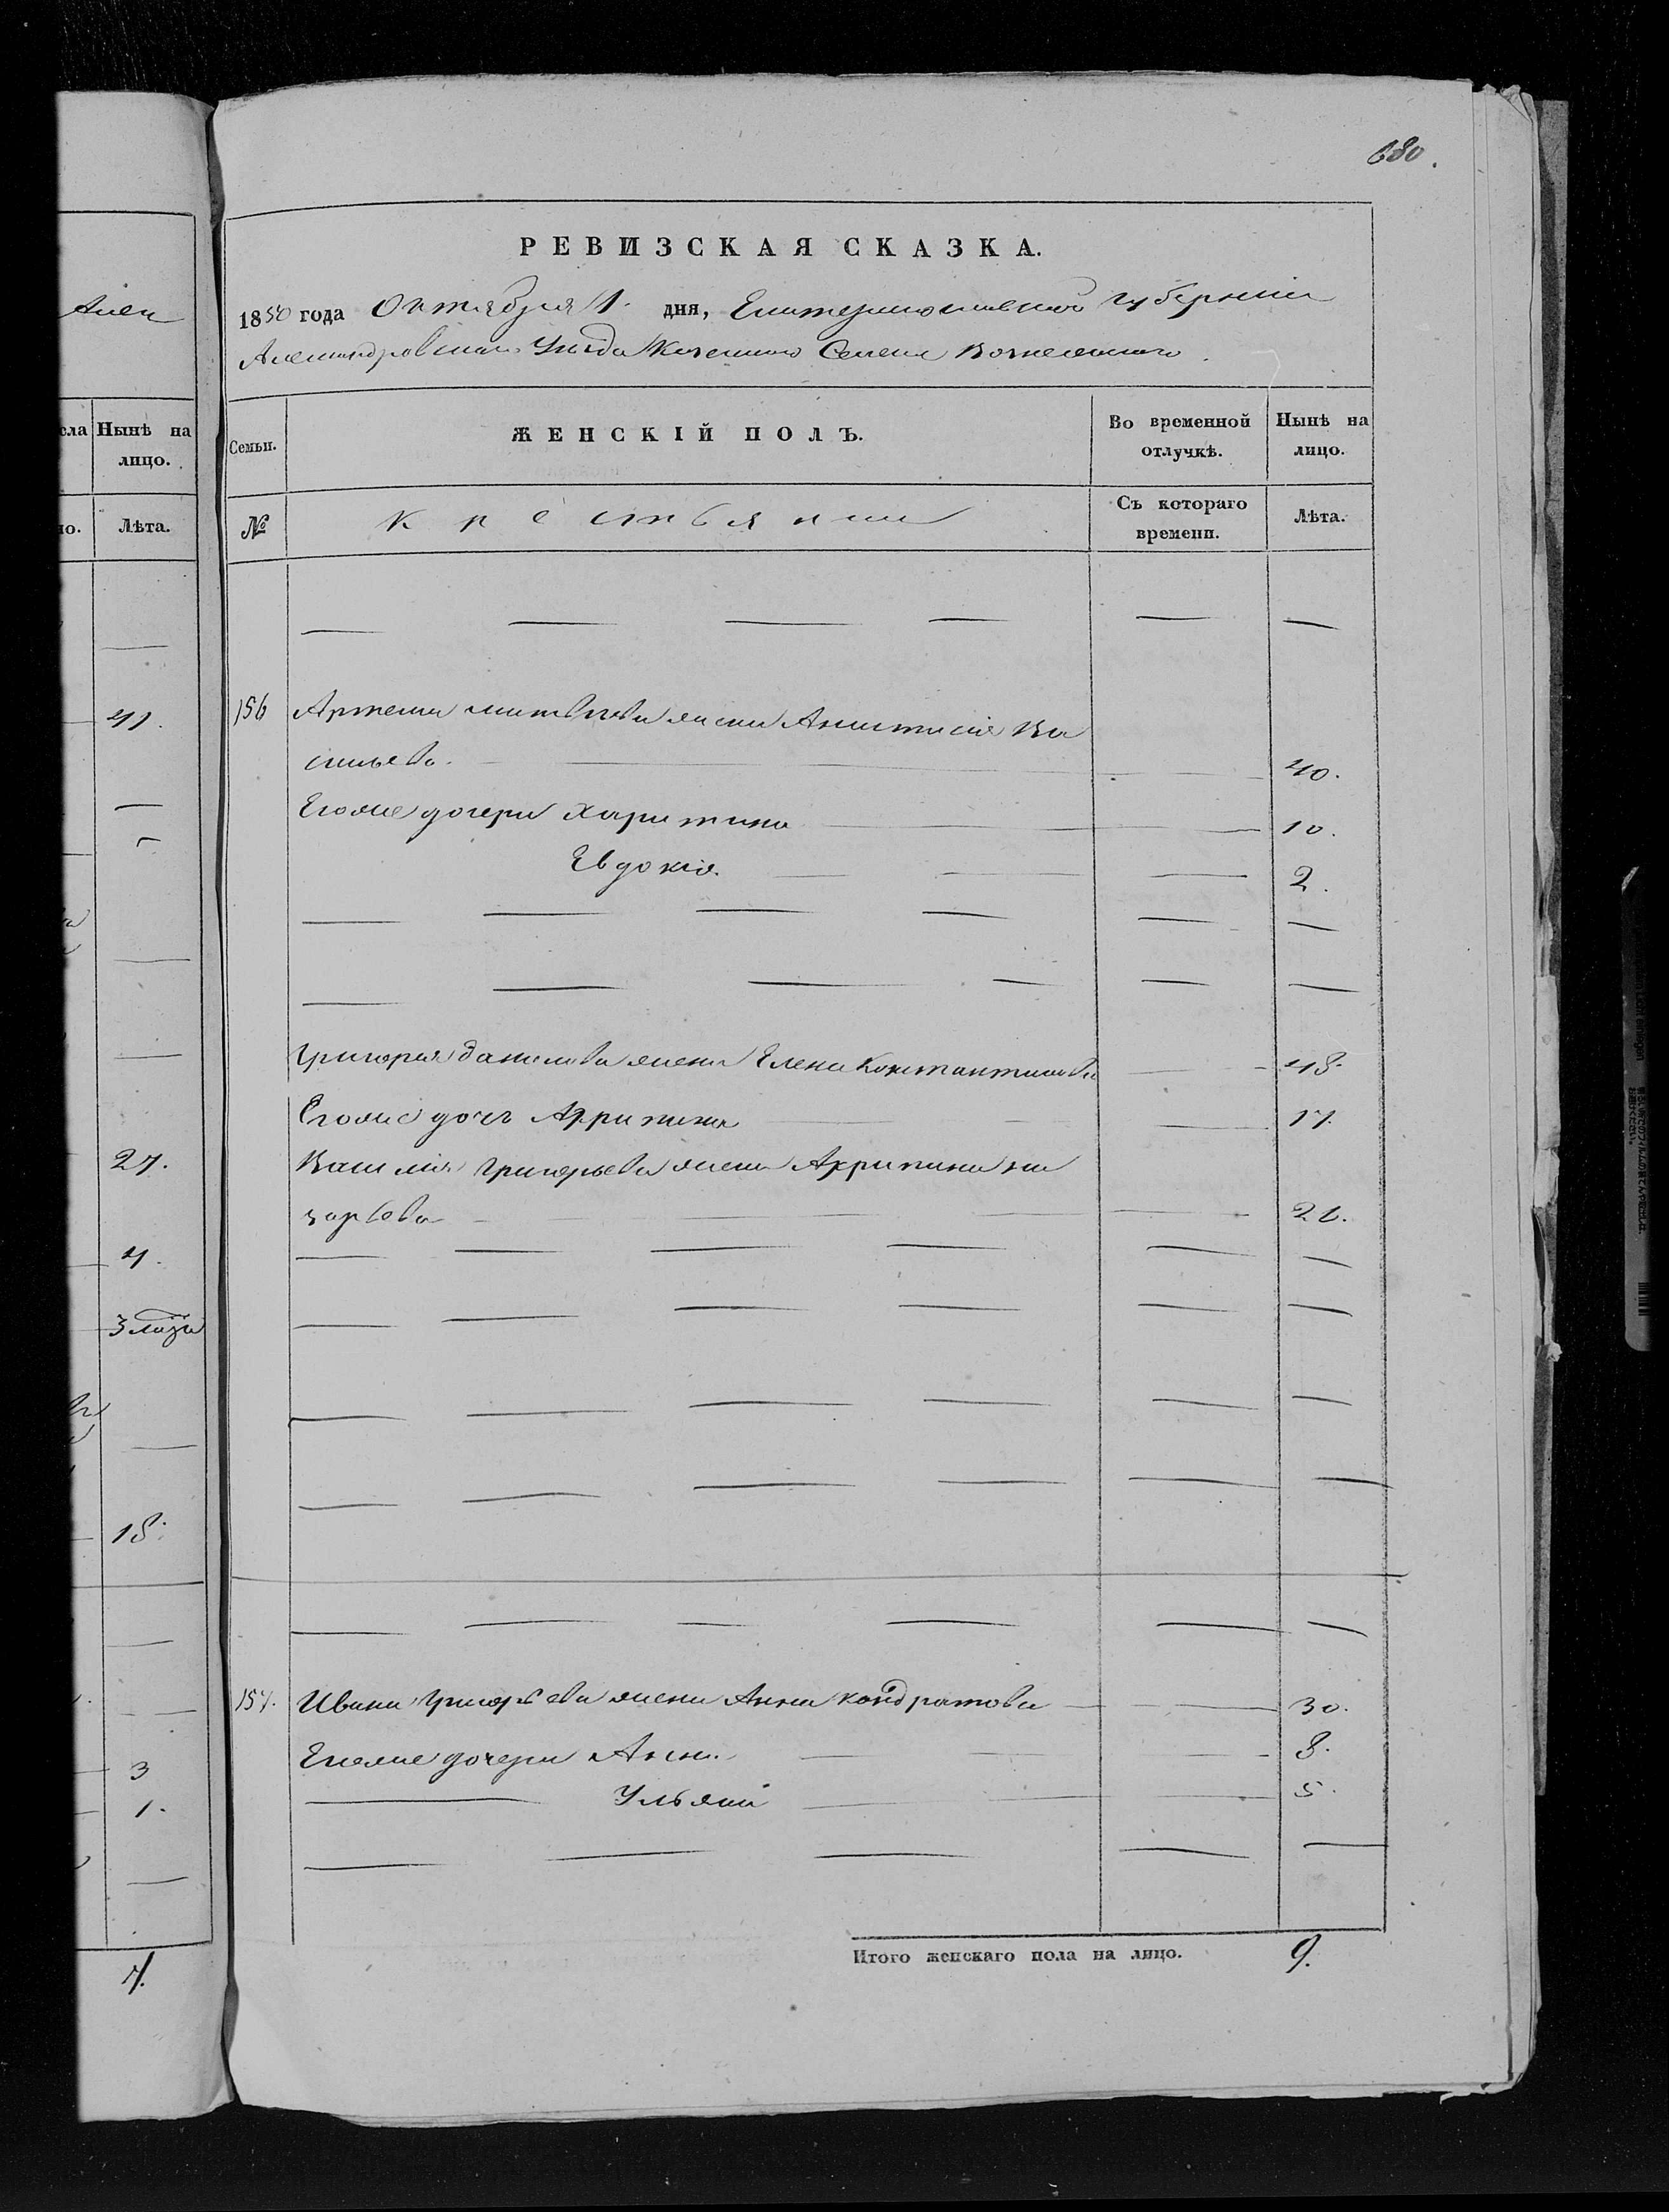 680.
Аlек
сла Нынѣ на
лицо.
но. Лѣта.
41.
27.
4.
18.
3
1.
7.
РЕВИЗСКАЯ СКАЗКА.
1850 года Октября 1. дня, Екатеринославской губерніи
Александровскаго Уѣзда Казеннаго Селенія Вознесенскаго.
Семьи. ЖЕНСКІЙ ПОЛЪ. Во временной отлучкѣ. Нынѣ на лицо.
№ Крестьяне Съ котораго времени. Лѣта.
156 Артема Матвѣева жена Анастасія Ва
сильева. 40.
Егоже дочери Харитина 10.
Евдокія. 2.
Григорія Данилова жена Елена Константинова 48.
Егоже дочь Агрипина 17.
Василія Григорьева жена Агрипина На
зарьева 26.
157. Ивана Григорьева жена Анна Кондратова 30.
Егоже дочери Анна. 8.
Ульяна 5.
Итого женскаго пола на лицо. 9.